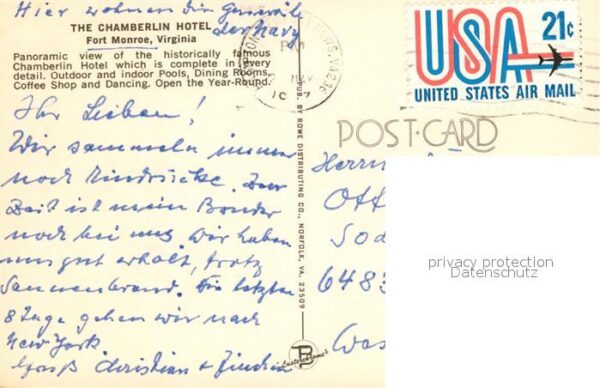 Hier wohnen die Generäle
der Navy
THE CHAMBERLIN HOTEL
Fort Monroe, Virginia
Panoramic view of the historically famous
Chamberlin Hotel which is complete in every
detail. Outdoor and indoor Pools, Dining Rooms,
Coffee Shop and Dancing. Open the Year-Round.
Ihr Lieben!
Wir sammeln immer
noch Eindrücke. Zur
Zeit ist mein Bruder
noch bei uns. Wir haben
uns gut erholt, trotz
Sonnenbrand. Die letzten
8 Tage gehen wir nach
New York
Gruß Christian +
PUB. BY ROWE DISTRIBUTING CO., NORFOLK, VA. 23509
Lusterchrome
USA 21c
UNITED STATES AIR MAIL
POST CARD
Herrn
Ott
Sod
6483
privacy protection
Datenschutz